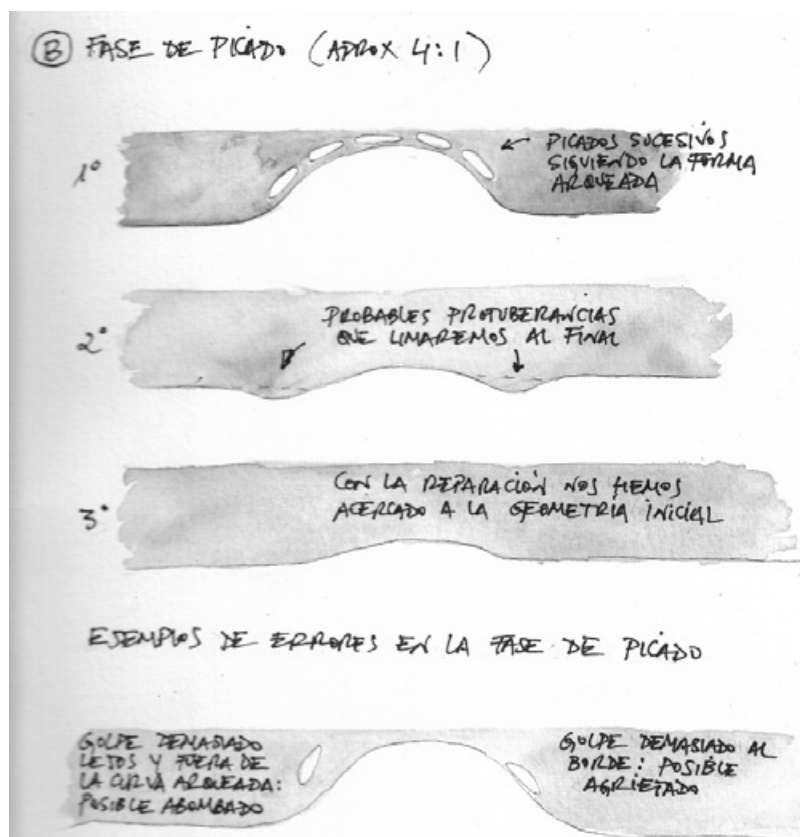 B FASE DE PICADO (APROX 4:1)
1º
PICADOS SUCESIVOS
SIGUIENDO LA FORMA
ARQUEADA
2º
PROBABLES PROTUBERANCIAS
QUE LIMAREMOS AL FINAL
3º
CON LA REPARACIÓN NOS HEMOS
ACERCADO A LA GEOMETRÍA INICIAL
EJEMPLOS DE ERRORES EN LA FASE DE PICADO
GOLPE DEMASIADO
LEJOS Y FUERA DE
LA CURVA ARQUEADA:
POSIBLE ABOMBADO
GOLPE DEMASIADO AL
BORDE: POSIBLE
AGRIETADO